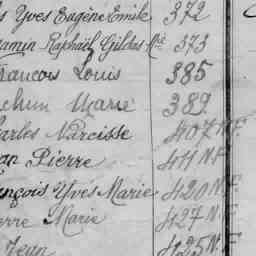 Yves Eugène Emile 372
Raphaël Gildas 373
François Louis 385
Marie 389
Narcisse 407 N.F.
Pierre 411 N.F.
François Yves Marie 420 N.F.
Marie 427 N.F.
Jean 425 N.F.